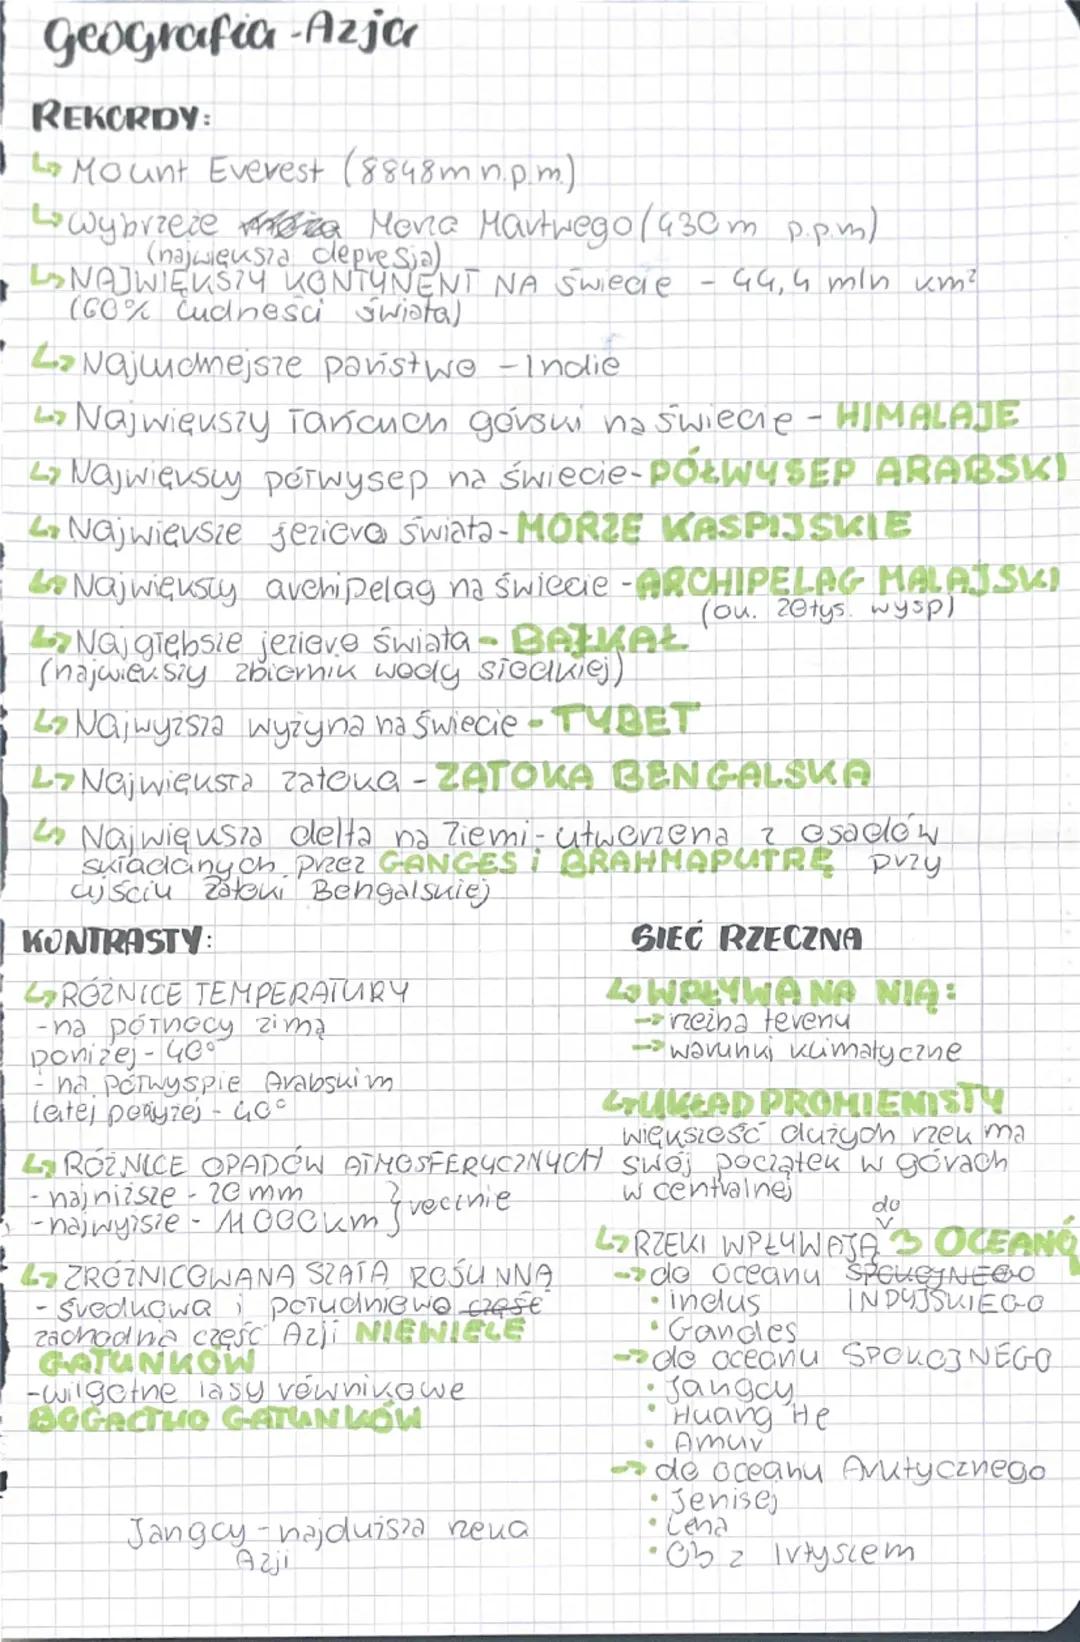 Geografia - Azja
REKORDY:
↳ Mount Everest (8848m n.p.m.)
↳ Wybrzeże Morza Martwego (430m p.p.m)
(największa depresja)
↳ NAJWIĘKSZY KONTYNENT NA świecie - 44,4 mln km²
(60% ludności świata)
↳ Najludniejsze państwo - Indie
↳ Największy łańcuch górski na świecie - HIMALAJE
↳ Największy półwysep na świecie - PÓŁWYSEP ARABSKI
↳ Największe jezioro świata - MORZE KASPIJSKIE
↳ Największy archipelag na świecie - ARCHIPELAG MALAJSKI
(ok. 20tys. wysp)
↳ Najgłębsze jezioro świata - BAJKAŁ
(największy zbiornik wody słodkiej)
↳ Najwyższa wyżyna na świecie - TYBET
↳ Największa zatoka - ZATOKA BENGALSKA
↳ Największa delta na Ziemi - utworzona z osadów
składanych przez GANGES i BRAHMAPUTRĘ przy
ujściu Zatoki Bengalskiej
KONTRASTY:
↳ RÓŻNICE TEMPERATURY
- na północy zimą
poniżej - 40°
- na półwyspie Arabskim
latej powyżej - 40°
↳ RÓŻNICE OPADÓW ATMOSFERYCZNYCH
- najniższe - 20 mm
- najwyższe - 11000km } rocznie
↳ ZRÓŻNICOWANA SZATA ROŚLINNA
- środkowa i południowo część
zachodnia część Azji NIEWIELE
GATUNKÓW
- wilgotne lasy równikowe
BOGACTWO GATUNKÓW
Jangcy - najdłuższa rzeka
Azji
SIEĆ RZECZNA
↳ WPŁYWA NA NIĄ:
→ rzeźba terenu
→ warunki klimatyczne
↳ UKŁAD PROMIENISTY
większość dużych rzek ma
swój początek w górach
w centralnej
↳ RZEKI WPŁYWAJĄ do 3 OCEANÓ
→ do oceanu SPOKOJNEGO
INDYJSKIEGO
• indus
• Gandes
→ do oceanu SPOKOJNEGO
• Jangcy
• Huang He
• Amur
→ do oceanu Arktycznego
• Jenisej
• Lena
• Ob z Irtyszem